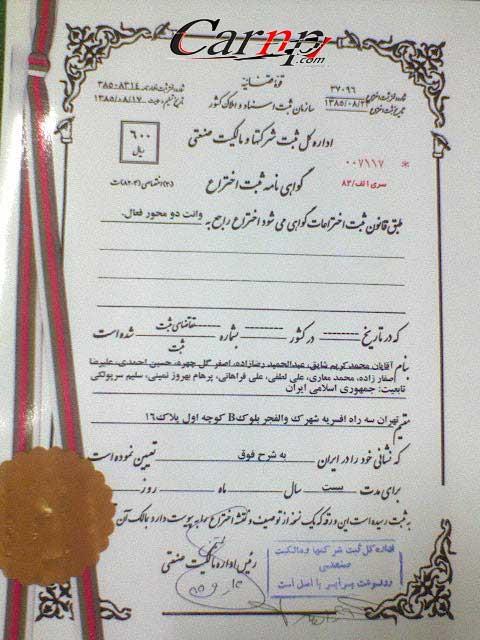 Carnp.com
قوۀ قضائیه
سازمان ثبت اسناد و املاک کشور
اداره کل ثبت شرکتها و مالکیت صنعتی
شماره و تاریخ ثبت اظهارنامه ۳۸۵۰۸۳۱۴
۱۳۸۵/۰۸/۱۷
شماره ثبت اختراع ۳۷۰۹۶
تاریخ ثبت اختراع ۱۳۸۵/۰۸/۲۴
۶۰۰
ریال
۰۰۷۱۱۷ *
سری ۱ الف/۸۳
گواهی نامه ثبت اختراع
(۲) اختصاصی (۳-۸۲)ث
طبق قانون ثبت اختراعات گواهی می شود اختراع راجع به وانت دو محور فعال.
که در تاریخ -------- در کشور -------- بشماره -------- تقاضای ثبت
ثبت شده است
بنام آقایان محمدکریم شایق، عبدالحمید رضازاده، اصغر گل چهره، حسین احمدی، علیرضا
صفار زاده، محمد معاری، علی لطفی، علی فراهانی، پرهام بهروز نمینی، سلیم سرپولکی
تابعیت: جمهوری اسلامی ایران
مقیم تهران سه راه افسریه شهرک والفجر بلوک B کوچه اول پلاک ۱۶
که نشانی خود را در ایران به شرح فوق تعیین نموده است
برای مدت بیست سال ماه روز
به ثبت رسیده است این ورقه که یک نسخه از توصیف و نقشه اختراع بدان پیوست دارد بمالک آن
رئیس اداره مالکیت صنعتی
اداره کل ثبت شرکتها و مالکیت
صنعتی
رونوشت برابر با اصل است